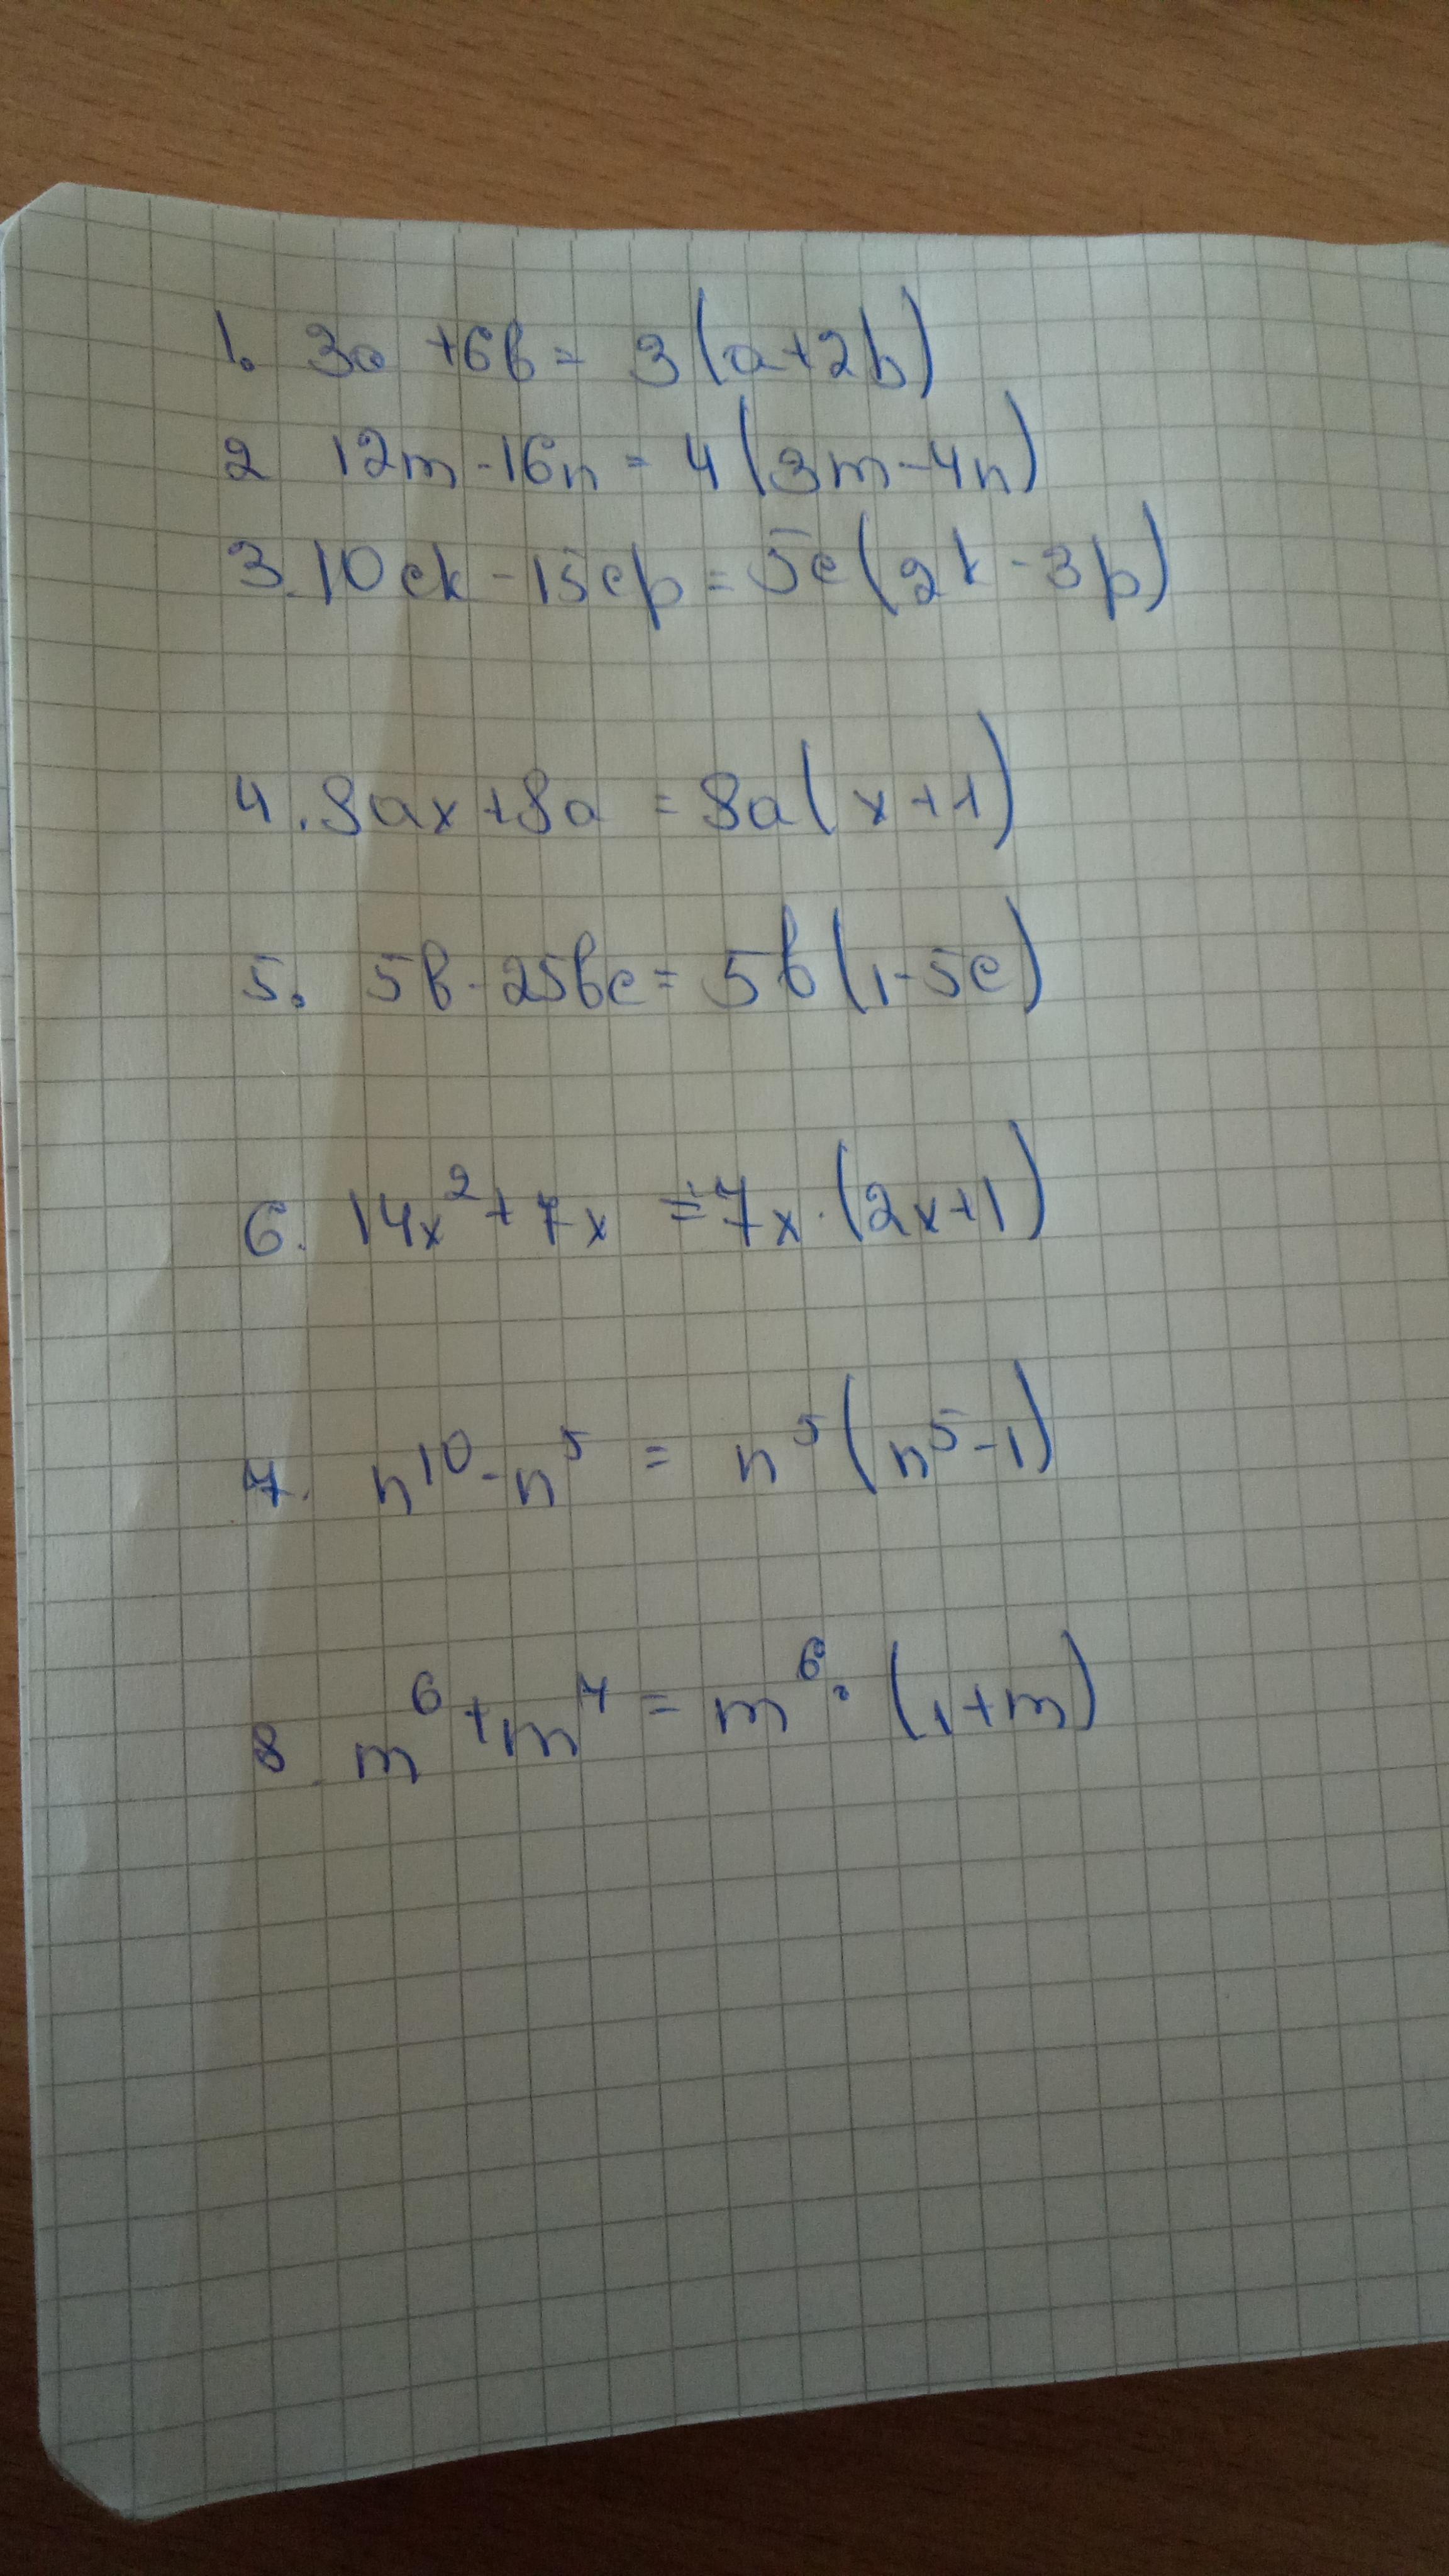 1. 3a +6b = 3(a+2b)
2 12m - 16n = 4(3m-4n)
3. 10ck - 15cp = 5c(2k - 3p)
4. 8ax + 8a = 8a(x+1)
5. 5b - 25bc = 5b(1-5c)
6. 14x² + 7x = 7x · (2x+1)
7. n¹⁰ - n⁵ = n⁵(n⁵-1)
8. m⁶ + m⁷ = m⁶ · (1+m)